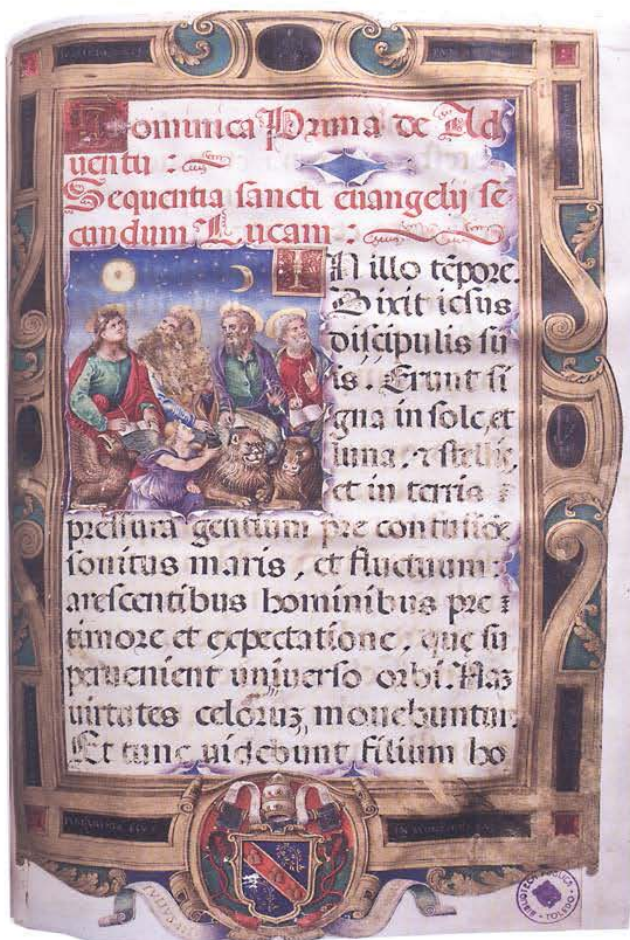 Dominica Prima de Ad
uentu :
Sequentia sancti euangelij se
cundum Lucam :
IN illo tēpore.
Dixit iesus
discipulis su
is. Erunt si
gna in sole, et
luna, ⁊ stellis,
et in terris
pressura gentium pre confusiõe
sonitus maris, et fluctuum:
arescentibus hominibus pre
timore et expectatione, que su
peruenient uniuerso orbi. Naz
uirtates celoruʒ mouebuntur
Et tunc uidebunt filium ho
BIBLIOTECA PUBLICA
TOLEDO